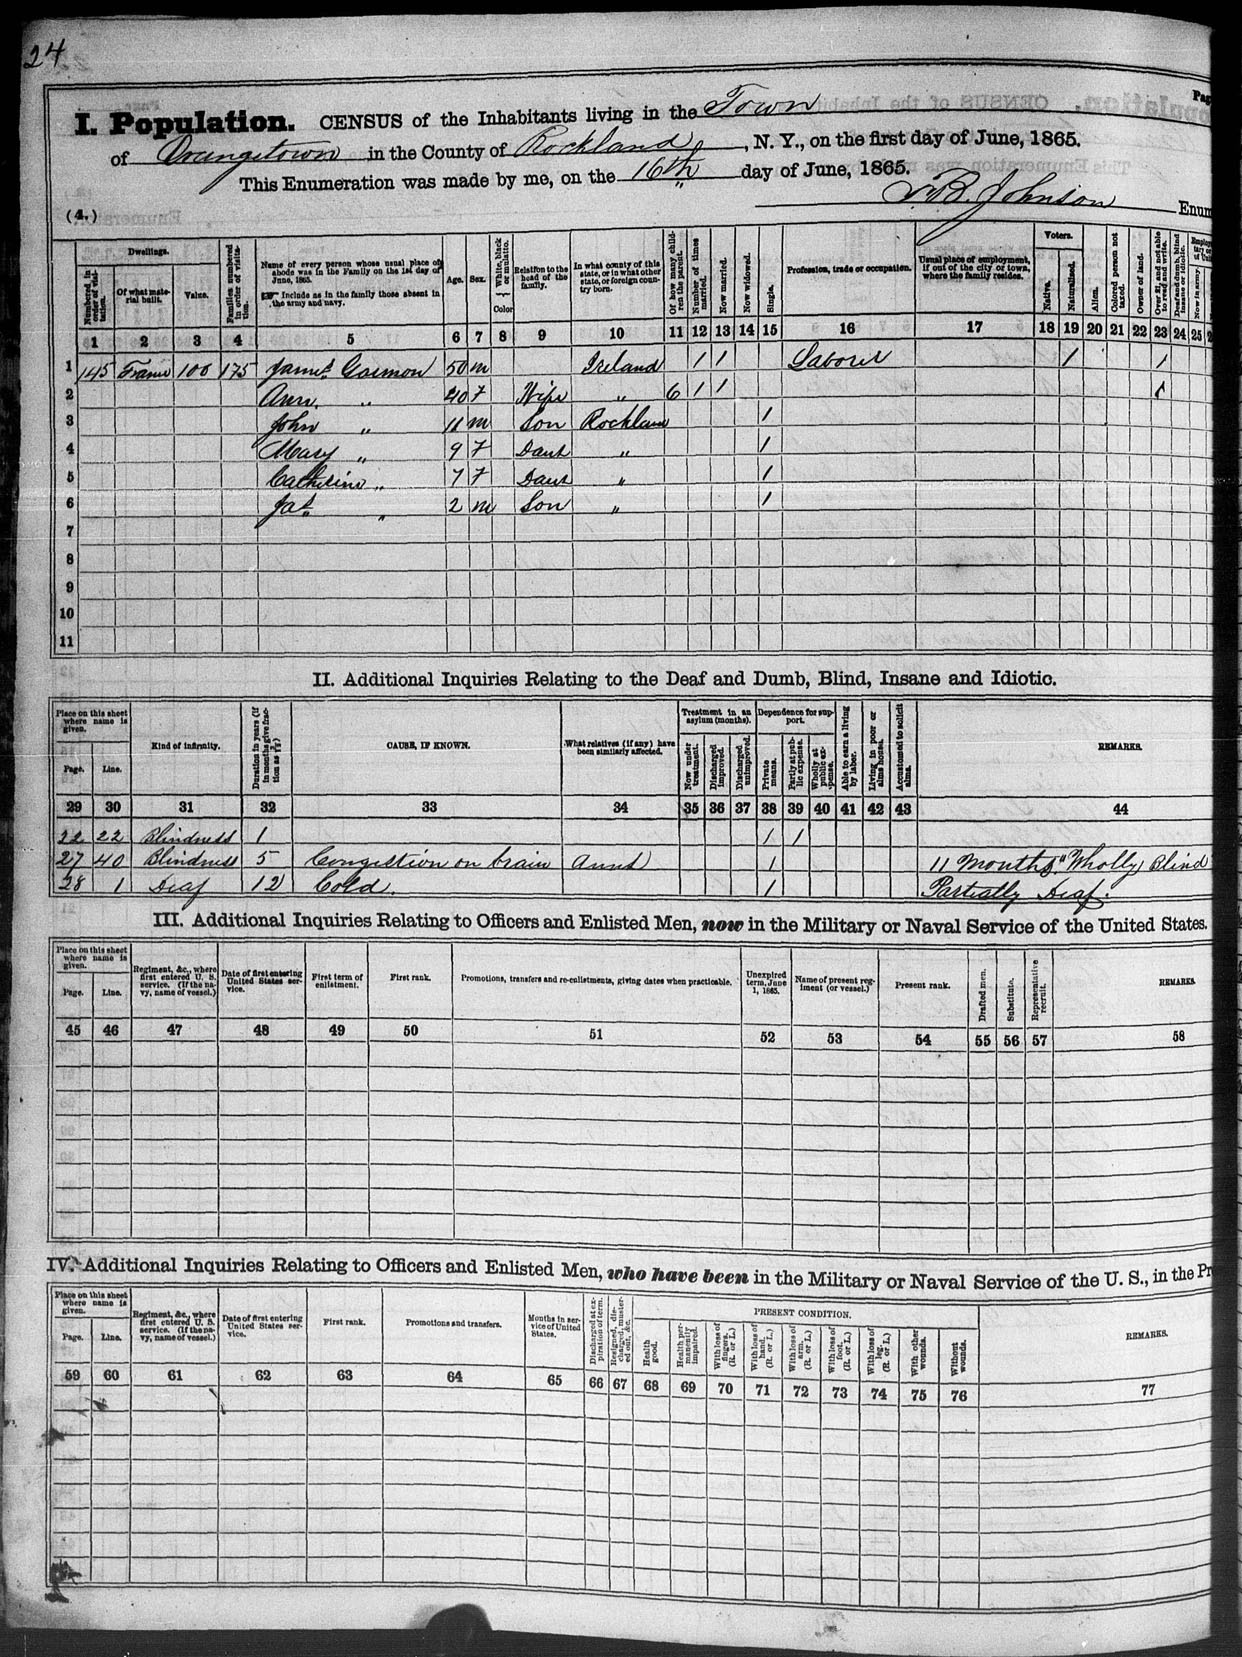 24
Pag
I. Population. CENSUS of the Inhabitants living in the Town
of Orangetown in the County of Rockland, N. Y., on the first day of June, 1865.
This Enumeration was made by me, on the 16th day of June, 1865.
B. Johnson Enum
(4.)
Numbered in order of visitation. Dwellings. Of what material built. Value. Families numbered in order of visitation. Name of every person whose usual place of abode was in the Family on the 1st day of June, 1865. Include as in the family those absent in the army and navy. Age. Sex. White, black or mulatto. Color Relation to the head of the family. In what county of this state, or in what other state, or foreign country born. Of how many children the parent. Number of times married. Now married. Now widowed. Single. Profession, trade or occupation. Usual place of employment, if out of the city or town, where the family resides. Voters. Native. Naturalized. Alien. Colored person not taxed. Owner of land. Over 21, and not able to read and write. Deaf and dumb, blind insane or idiotic. Now in army.
1 2 3 4 5 6 7 8 9 10 11 12 13 14 15 16 17 18 19 20 21 22 23 24 25
1 145 Frame 100 175 James Gormon 50 m Ireland 1 1 Laborer 1 1
2 Ann " 40 F Wife " 6 1 1 1
3 John " 11 m Son Rockland 1
4 Mary " 9 F Daut " 1
5 Catherine " 7 F Daut " 1
6 Jas " 2 m Son " 1
7
8
9
10
11
II. Additional Inquiries Relating to the Deaf and Dumb, Blind, Insane and Idiotic.
Place on this sheet where name is given. Page. Line. Kind of infirmity. Duration in years (if in months give fraction as 7/12) CAUSE, IF KNOWN. What relatives (if any) have been similarly affected. Treatment in an asylum (months). Now under treatment. Discharged improved. Discharged unimproved. Dependence for support. Private means. Partly at public expense. Wholly at public expense. Able to earn a living by labor. Living in poor or alms house. Accustomed to solicit alms. REMARKS.
29 30 31 32 33 34 35 36 37 38 39 40 41 42 43 44
22 22 Blindness 1 1 1
27 40 Blindness 5 Congestion on brain Aunt 1 11 Months "Wholly Blind
28 1 Deaf 12 Cold. 1 Partially Deaf.
III. Additional Inquiries Relating to Officers and Enlisted Men, now in the Military or Naval Service of the United States.
Place on this sheet where name is given. Page. Line. Regiment, &c., where first entered U. S. service. (If the navy, name of vessel.) Date of first entering United States service. First term of enlistment. First rank. Promotions, transfers and re-enlistments, giving dates when practicable. Unexpired term, June 1, 1865. Name of present regiment (or vessel.) Present rank. Drafted men. Substitute. Representative recruit. REMARKS.
45 46 47 48 49 50 51 52 53 54 55 56 57 58
IV. Additional Inquiries Relating to Officers and Enlisted Men, who have been in the Military or Naval Service of the U. S., in the Pr
Place on this sheet where name is given. Page. Line. Regiment, &c., where first entered U. S. service. (If the navy, name of vessel.) Date of first entering United States service. First rank. Promotions and transfers. Months in service of United States. Discharged at expiration of term. Resigned, discharged, mustered out, &c. PRESENT CONDITION. Health good. Health permanently impaired. With loss of fingers. (R. or L.) With loss of hand. (R. or L.) With loss of arm. (R. or L.) With loss of foot. (R. or L.) With loss of leg. (R. or L.) With other wounds. Without wounds. REMARKS.
59 60 61 62 63 64 65 66 67 68 69 70 71 72 73 74 75 76 77